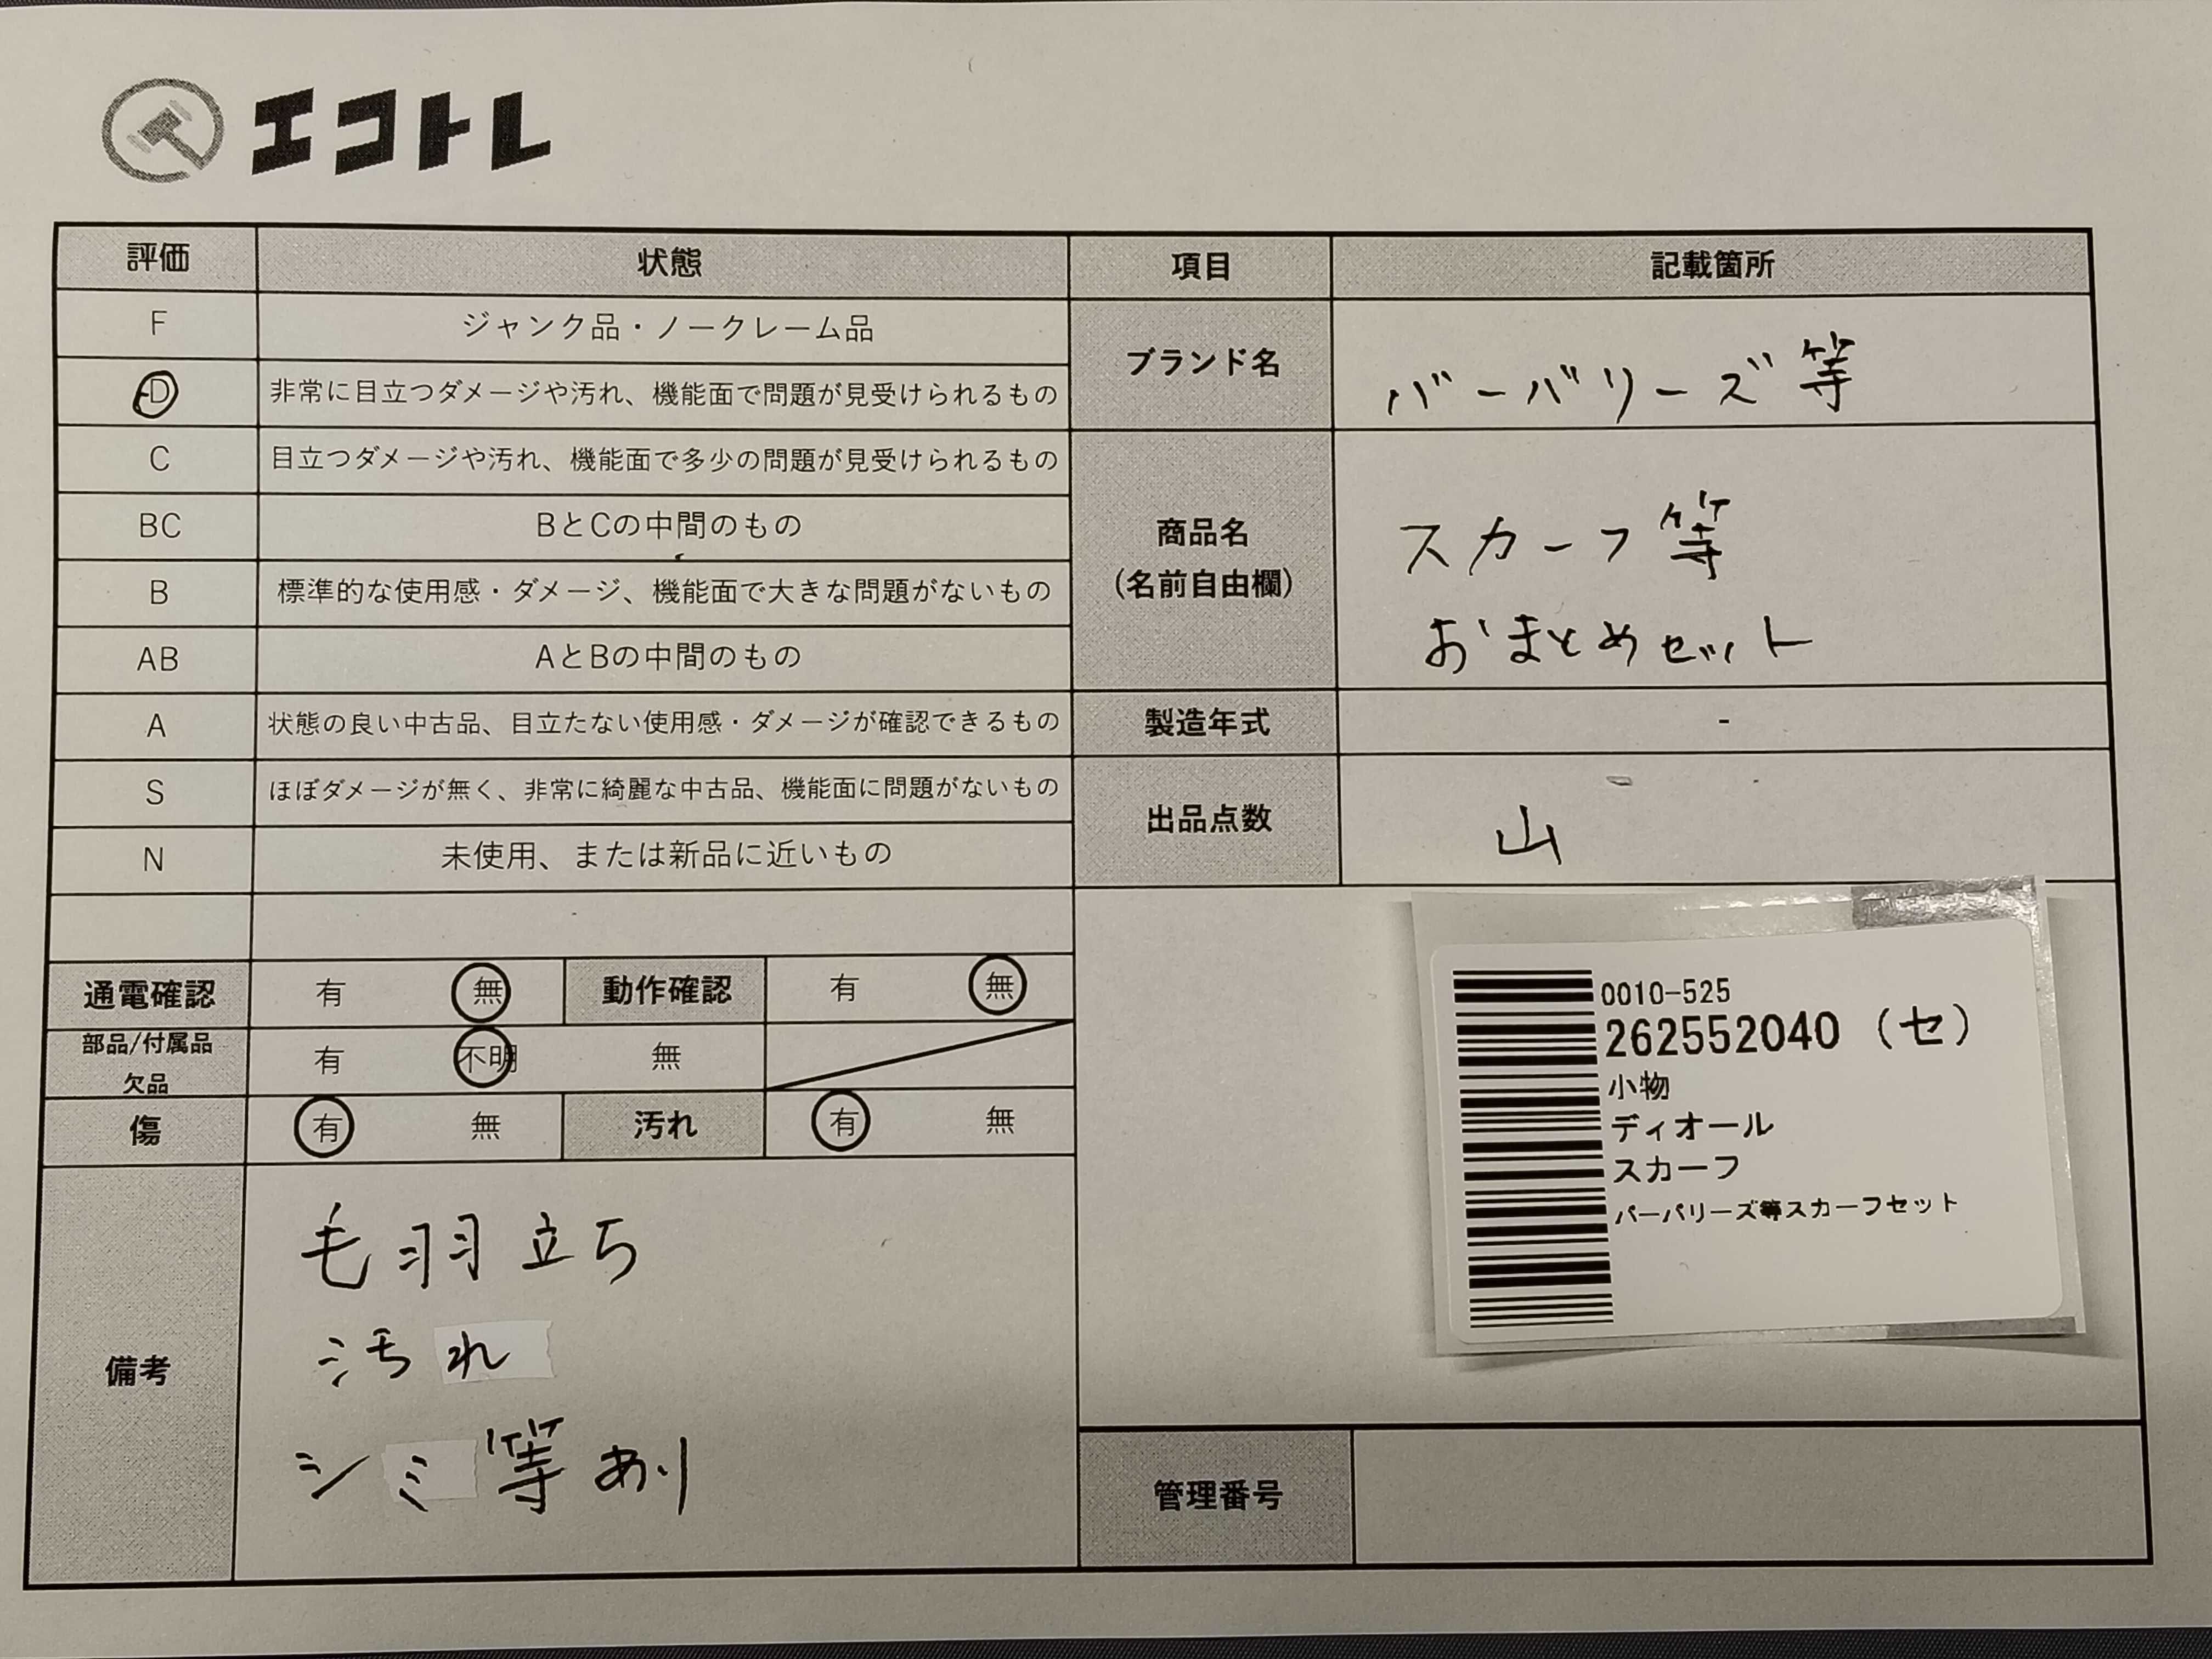 エコトレ
評価 状態 項目 記載箇所
F ジャンク品・ノークレーム品
D 非常に目立つダメージや汚れ、機能面で問題が見受けられるもの
C 目立つダメージや汚れ、機能面で多少の問題が見受けられるもの
BC BとCの中間のもの
B 標準的な使用感・ダメージ、機能面で大きな問題がないもの
AB AとBの中間のもの
A 状態の良い中古品、目立たない使用感・ダメージが確認できるもの
S ほぼダメージが無く、非常に綺麗な中古品、機能面に問題がないもの
N 未使用、または新品に近いもの
ブランド名 バーバリーズ等
商品名
(名前自由欄)
スカーフ等
おまとめセット
製造年式 -
出品点数 山
通電確認 有 無 動作確認 有 無
部品/付属品
欠品
有 不明 無
傷 有 無 汚れ 有 無
備考
毛羽立ち
汚れ
シミ等あり
0010-525
262552040 (セ)
小物
ディオール
スカーフ
バーバリーズ等スカーフセット
管理番号